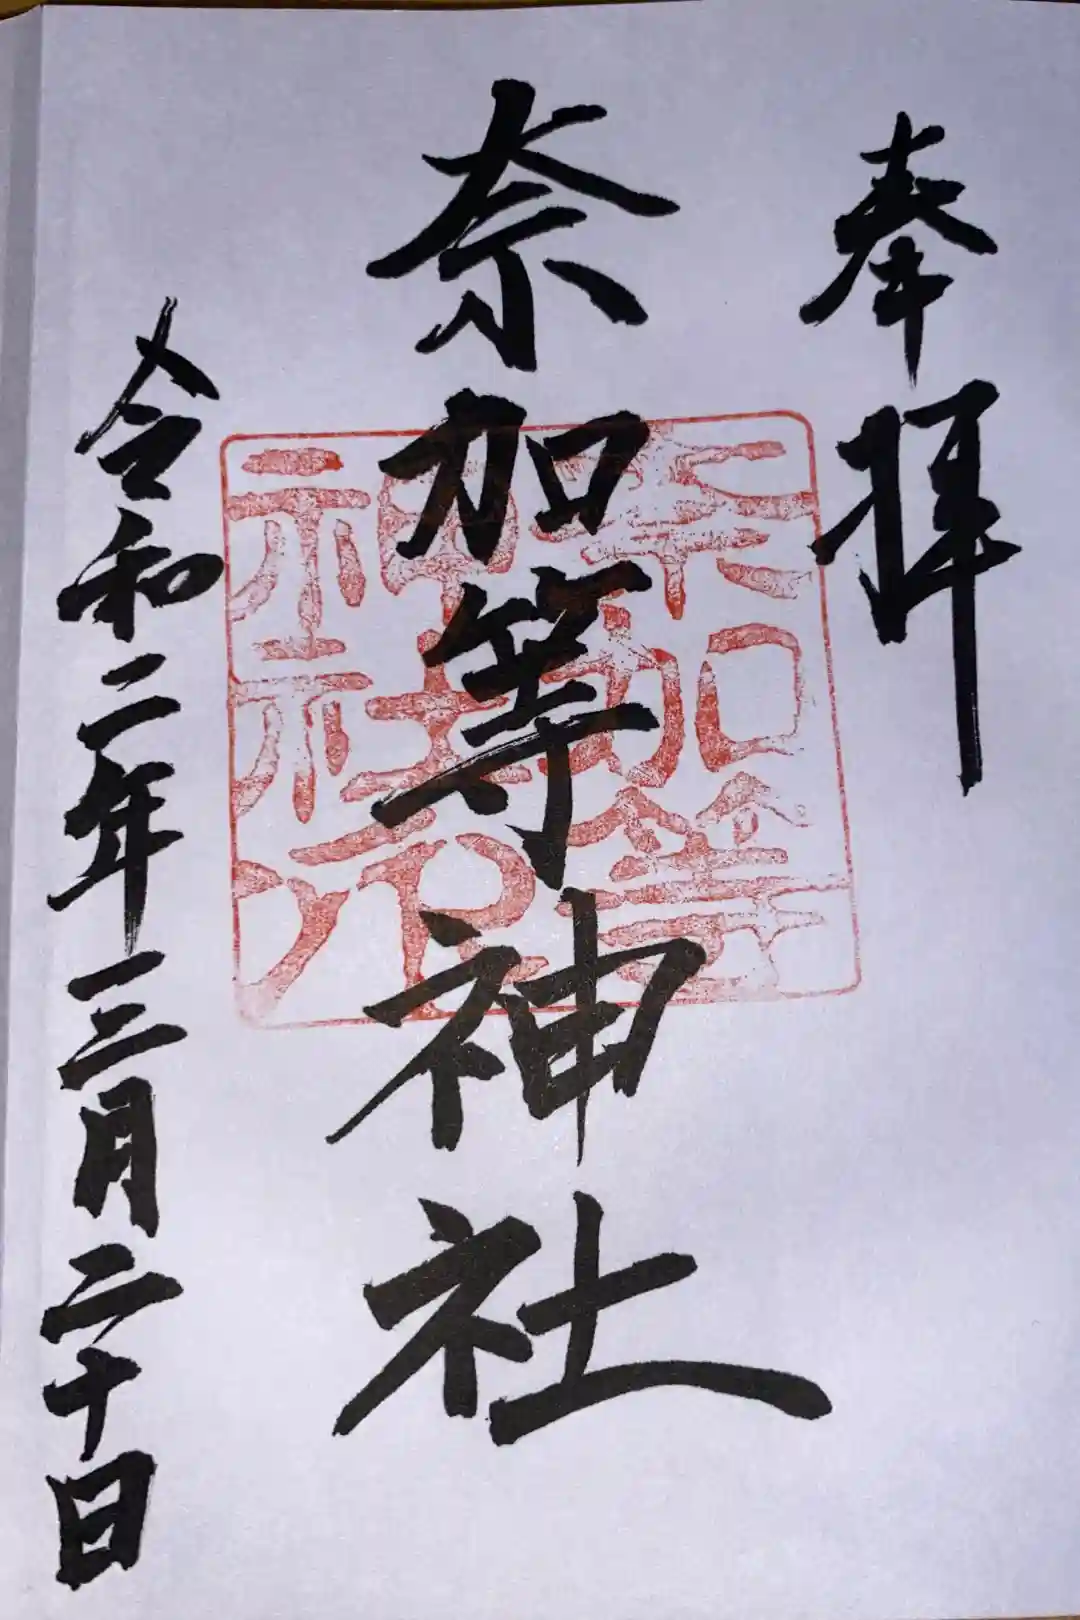 奉拝
奈加等神社
奈加等
神社
之印
令和二年三月二十日